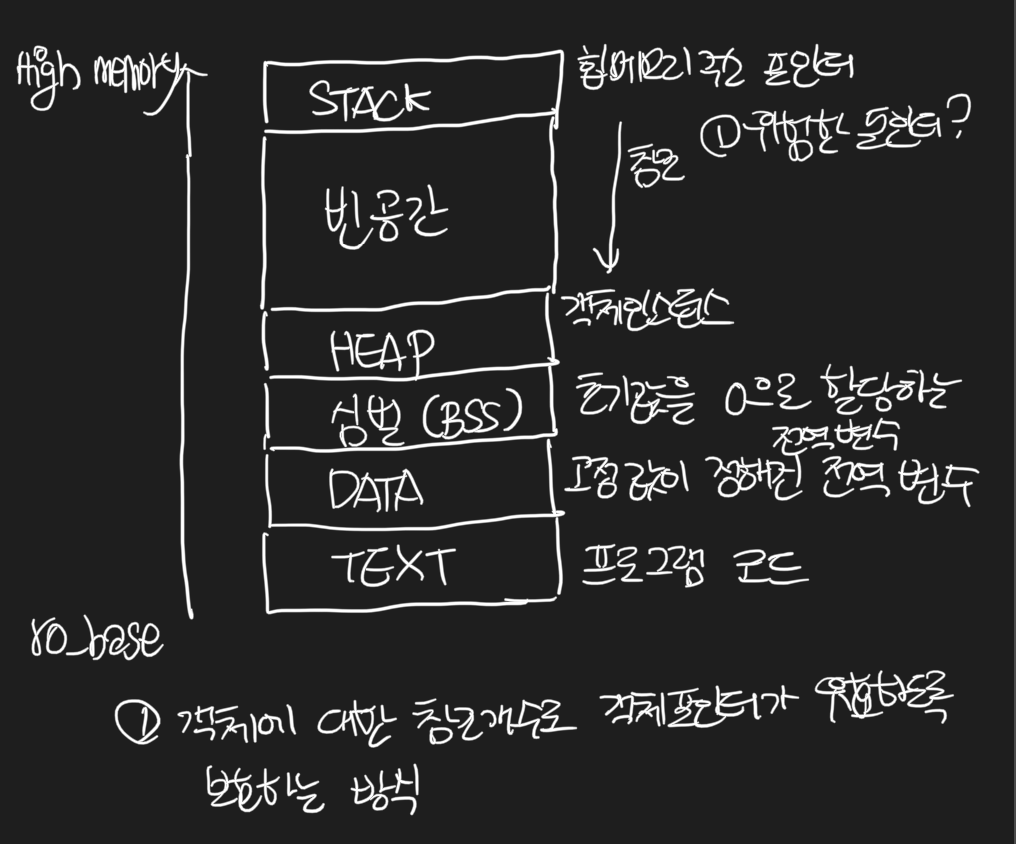 High memory
STACK
힙메모리 주소 포인터
① 위험한 포인터?
참조
빈공간
객체인스턴스
HEAP
심벌 (BSS)
초기값을 0으로 할당하는
전역변수
DATA
고정 값이 정해진 전역 변수
TEXT
프로그램 코드
ro_base
① 객체에 대한 참조개수로 객체포인터가 유효하도록
보호하는 방식